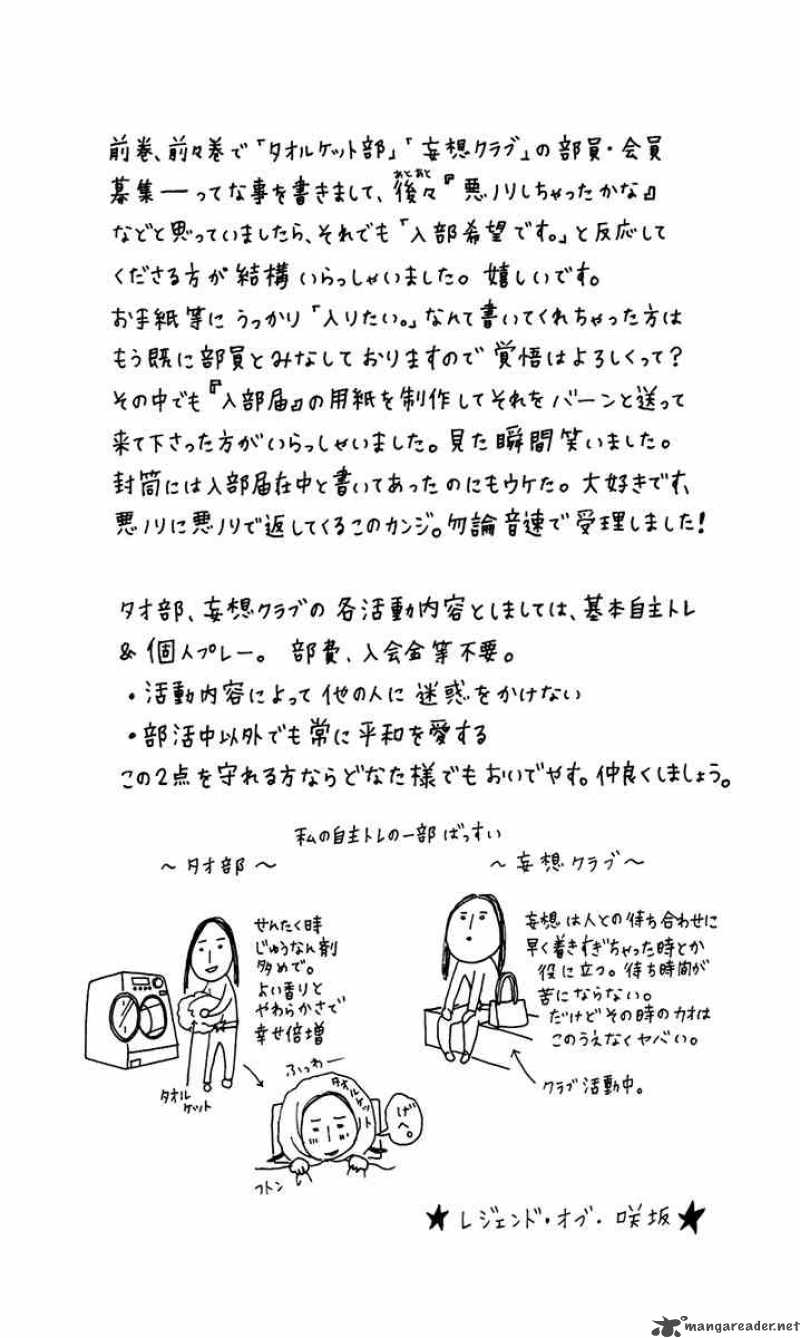 前巻、前々巻で「タオルケット部」「妄想クラブ」の部員・会員
募集──ってな事を書きまして、後々『悪ノリしちゃったかな』
あとあと
などと思っていましたら、それでも「入部希望です。」と反応して
くださる方が結構いらっしゃいました。嬉しいです。
お手紙等にうっかり「入りたい。」なんて書いてくれちゃった方は
もう既に部員とみなしておりますので覚悟はよろしくって?
その中でも『入部届』の用紙を制作してそれをバーンと送って
来て下さった方がいらっしゃいました。見た瞬間笑いました。
封筒には入部届在中と書いてあったのにもウケた。大好きです、
悪ノリに悪ノリで返してくるこのカンジ。勿論音速で受理しました!
タオ部、妄想クラブの各活動内容としましては、基本自主トレ
&個人プレー。部費、入会金等不要。
・活動内容によって他の人に迷惑をかけない
・部活中以外でも常に平和を愛する
この2点を守れる方ならどなた様でもおいでやす。仲良くしましょう。
私の自主トレの一部ばっすい
〜タオ部〜
せんたく時
じゅうなん剤
多めで。
よい香りと
やわらかさで
幸せ倍増
タオル
ケット
ふっわー
タオルケット
げへ。
フトン
〜妄想クラブ〜
妄想は人との待ち合わせに
早く着きすぎちゃった時とか
役に立つ。待ち時間が
苦にならない。
だけどその時のカオは
このうえなくヤバい。
クラブ活動中。
★レジェンド・オブ・咲坂★
mangareader.net